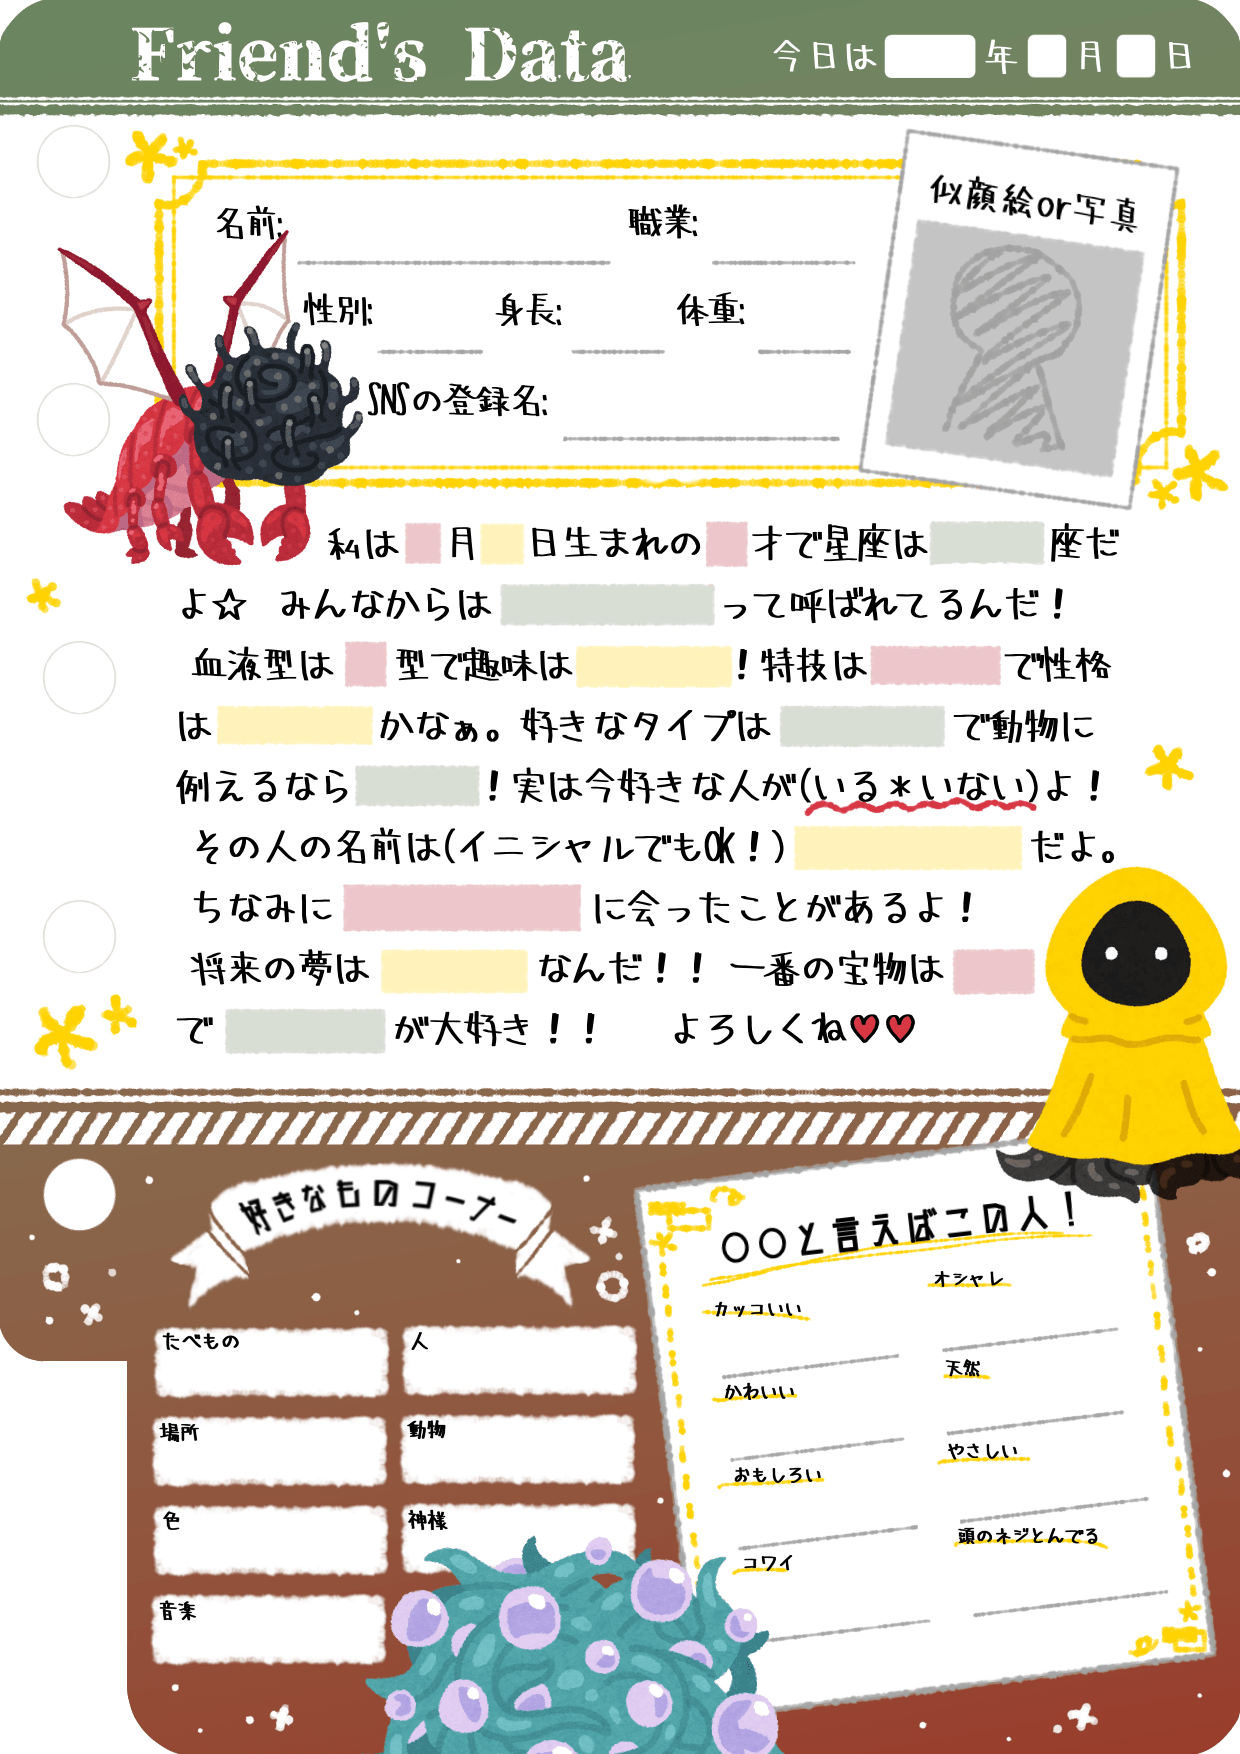 Friend's Data 今日は 年 月 日
似顔絵or写真
名前: 職業:
性別: 身長: 体重:
SNSの登録名:
私は 月 日生まれの 才で星座は 座だ
よ☆ みんなからは って呼ばれてるんだ！
血液型は 型で趣味は ！特技は で性格
は かなぁ。好きなタイプは で動物に
例えるなら ！実は今好きな人が(いる＊いない)よ！
その人の名前は(イニシャルでもOK！) だよ。
ちなみに に会ったことがあるよ！
将来の夢は なんだ！！ 一番の宝物は
で が大好き！！ よろしくね♥♥
好きなものコーナー
たべもの 人
場所 動物
色 神様
音楽
〇〇と言えばこの人！
カッコいい オシャレ
かわいい 天然
おもしろい やさしい
コワイ 頭のネジとんでる